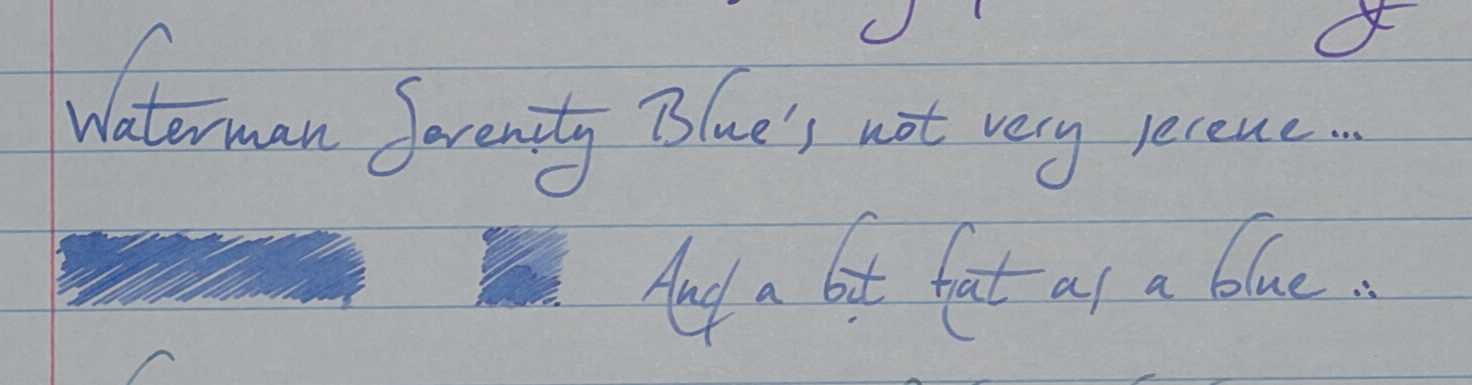 Waterman Serenity Blue's not very serene...
And a bit flat as a blue...